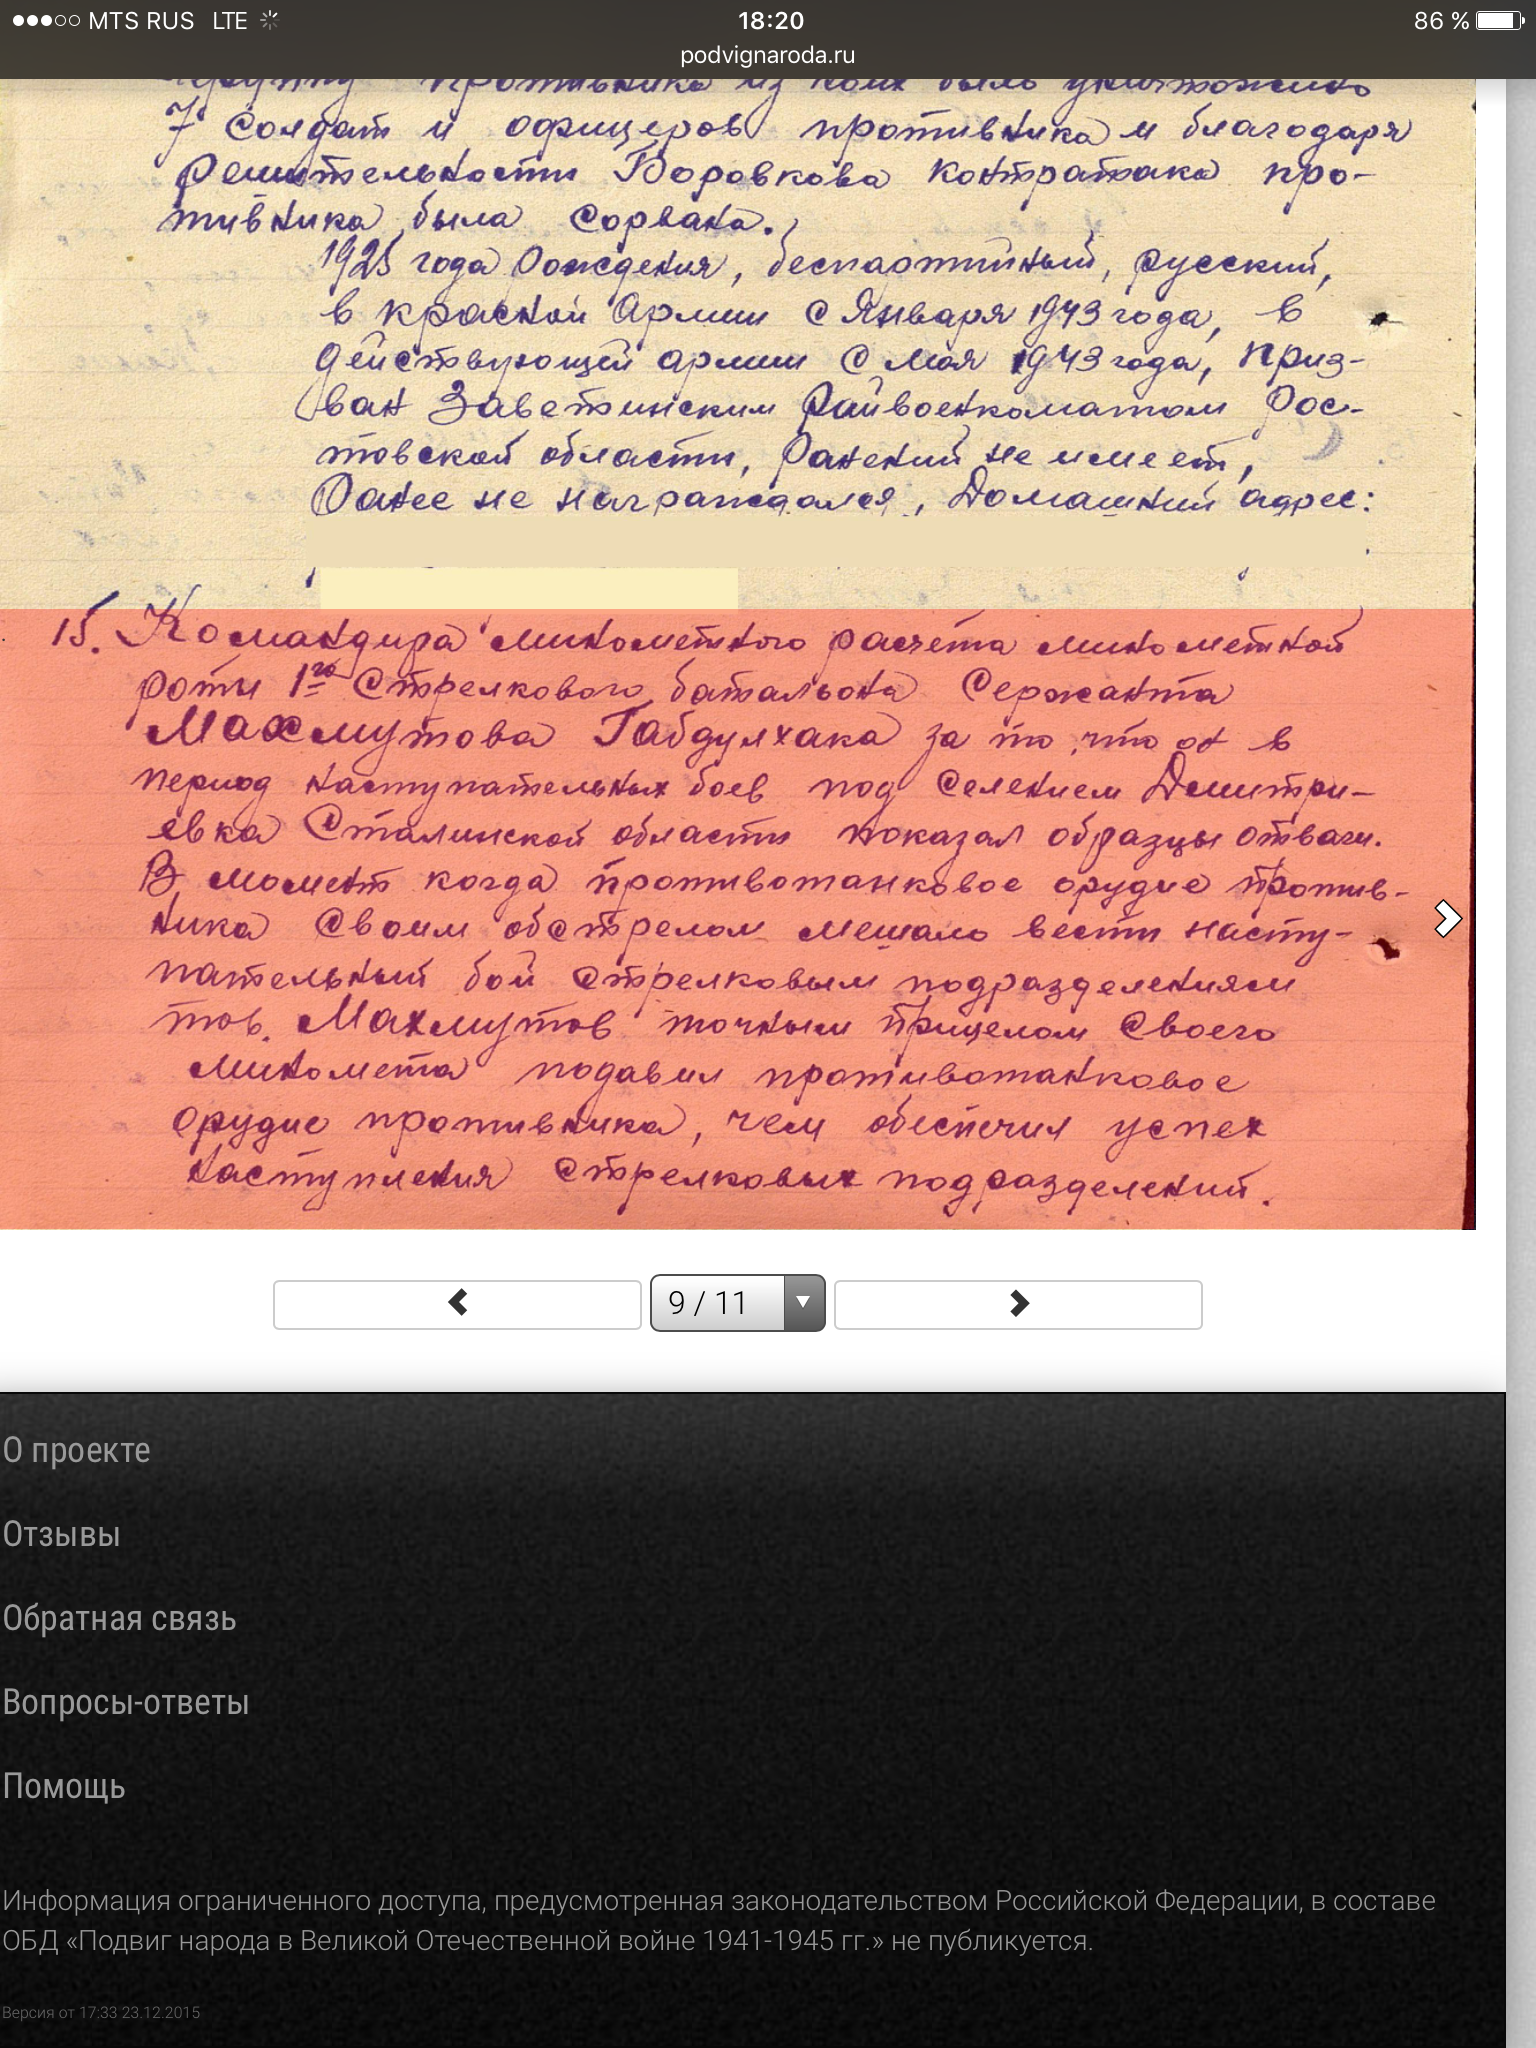 MTS RUS LTE 18:20 86 %
podvignaroda.ru
группу противника из коих было уничтожено
7 солдат и офицеров противника и благодаря
решительности Боровкова контратака про-
тивника была сорвана.
1925 года рождения, беспартийный, русский,
в красной Армии с Января 1943 года, в
действующей армии с мая 1943 года, приз-
ван Заветинским Райвоенкоматом Рос-
товской области, Ранений не имеет,
Ранее не награждался, Домашний адрес:
15. Командира минометного расчета минометной
роты 1го Стрелкового батальона Сержанта
Махмутова Габдулхака за то, что он в
период наступательных боев под селением Дмитри-
евка Сталинской области показал образцы отваги.
В момент когда противотанковое орудие против-
ника своим обстрелом мешало вести насту-
пательный бой стрелковым подразделениям
тов. Махмутов точным прицелом своего
миномета подавил противотанковое
орудие противника, чем обеспечил успех
наступления стрелковых подразделений.
9 / 11
О проекте
Отзывы
Обратная связь
Вопросы-ответы
Помощь
Информация ограниченного доступа, предусмотренная законодательством Российской Федерации, в составе
ОБД «Подвиг народа в Великой Отечественной войне 1941-1945 гг.» не публикуется.
Версия от 17:33 23.12.2015